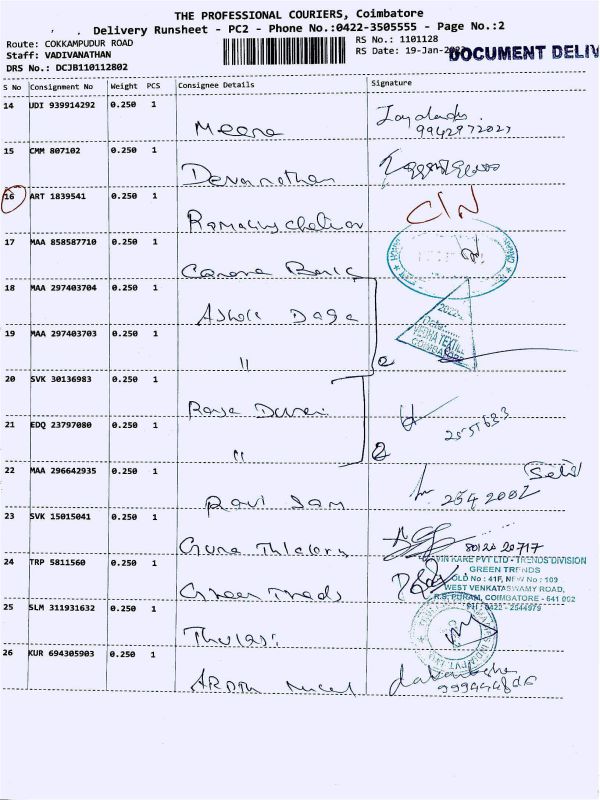 THE PROFESSIONAL COURIERS, Coimbatore
Delivery Runsheet - PC2 - Phone No.:0422-3505555 - Page No.:2
Route: COKKAMPUDUR ROAD
RS No.: 1101128
Staff: VADIVANATHAN
RS Date: 19-Jan-
DOCUMENT DELIV
DRS No.: DCJB110112802
S No Consignment No Weight PCS Consignee Details Signature
14 UDI 939914292 0.250 1 Meena
9942972027
15 CMM 807102 0.250 1 Devanathan
16 ART 1839541 0.250 1
C/N
17 MAA 858587710 0.250 1 Canara Bank
18 MAA 297403704 0.250 1 Ashok Daga
2022
Date:
TEXTIL
COIMBATORE
19 MAA 297403703 0.250 1 "
20 SVK 30136983 0.250 1
21 EDQ 23797080 0.250 1 "
22 MAA 296642935 0.250 1 Ravi Sam
2542002
23 SVK 15015041 0.250 1
20717
KARE PVT LTD - TRENDS DIVISION
GREEN TRENDS
24 TRP 5811560 0.250 1 Green Trends
OLD No : 41F, NEW No : 109
WEST VENKATASWAMY ROAD,
R.S. PURAM, COIMGATORE - 641 002
PH : 0422 - 2544979
25 SLM 311931632 0.250 1 Thulasi
26 KUR 694305903 0.250 1